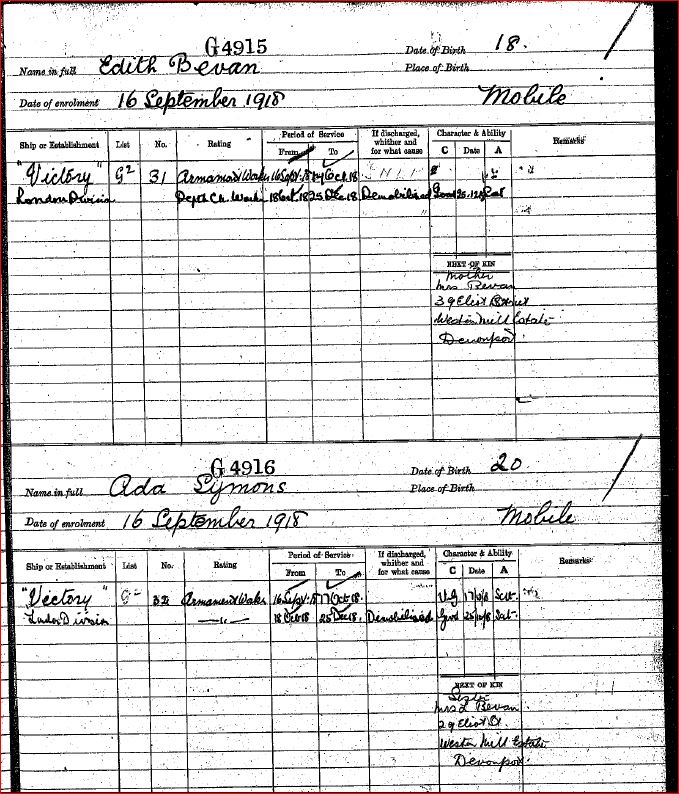 G4915
Date of Birth 18.
Name in full Edith Bevan
Place of Birth
Date of enrolment 16 September 1918
Mobile
Ship or Establishment List No. Rating Period of Service From To If discharged, whither and for what cause Character & Ability C Date A Remarks
"Victory" G2 31 16 Sept. 18 Oct. 18
London Division 18 Oct. 18 25 Dec 18 Demobilised Good Sat
NEXT OF KIN
Mother
Mrs Bevan
Eliot Street
Weston Mill Estate
Devonport.
G4916
Date of Birth 20
Name in full Ada Symons
Place of Birth
Date of enrolment 16 September 1918
Mobile
Ship or Establishment List No. Rating Period of Service From To If discharged, whither and for what cause Character & Ability C Date A Remarks
"Victory" G2 32 16 Sept. 18 17 Oct. 18 V.G. Sat.
London Division —"— 18 Oct 18 25 Dec 18. Demobilised Good Sat.
NEXT OF KIN
Sister
Mrs Bevan
29 Eliot St.
Weston Mill Estate
Devonport.